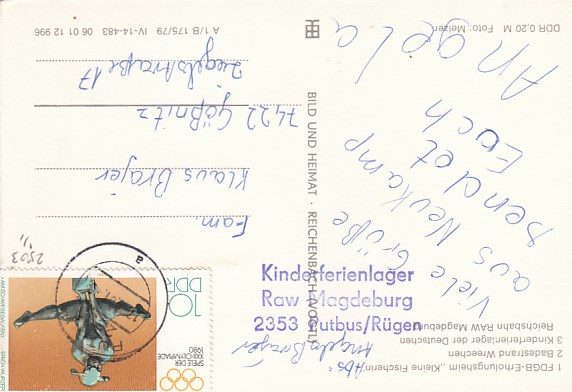 1 FDGB-Erholungsheim „Kleine Fischerin“, Abs.
2 Badestrand Wreechen
3 Kinderferienlager der Deutschen
Reichsbahn RAW Magdeburg
Viele Grüße
aus Neukamp
sendet
Euch
Angela
DDR 0,20 M Foto: Melzer
Abs.
Angela Brajer
BILD UND HEIMAT · REICHENBACH (VOGTL)
A 1/B 175/79 IV-14-483 06 01 12 996
Fam.
Klaus Brajer
7422 Gößnitz
Ziegelstraße 17
Kinderferienlager
Raw Magdeburg
2353 Putbus/Rügen
10
DDR
SPIELE DER
XXII. OLYMPIADE
1980
2503
a